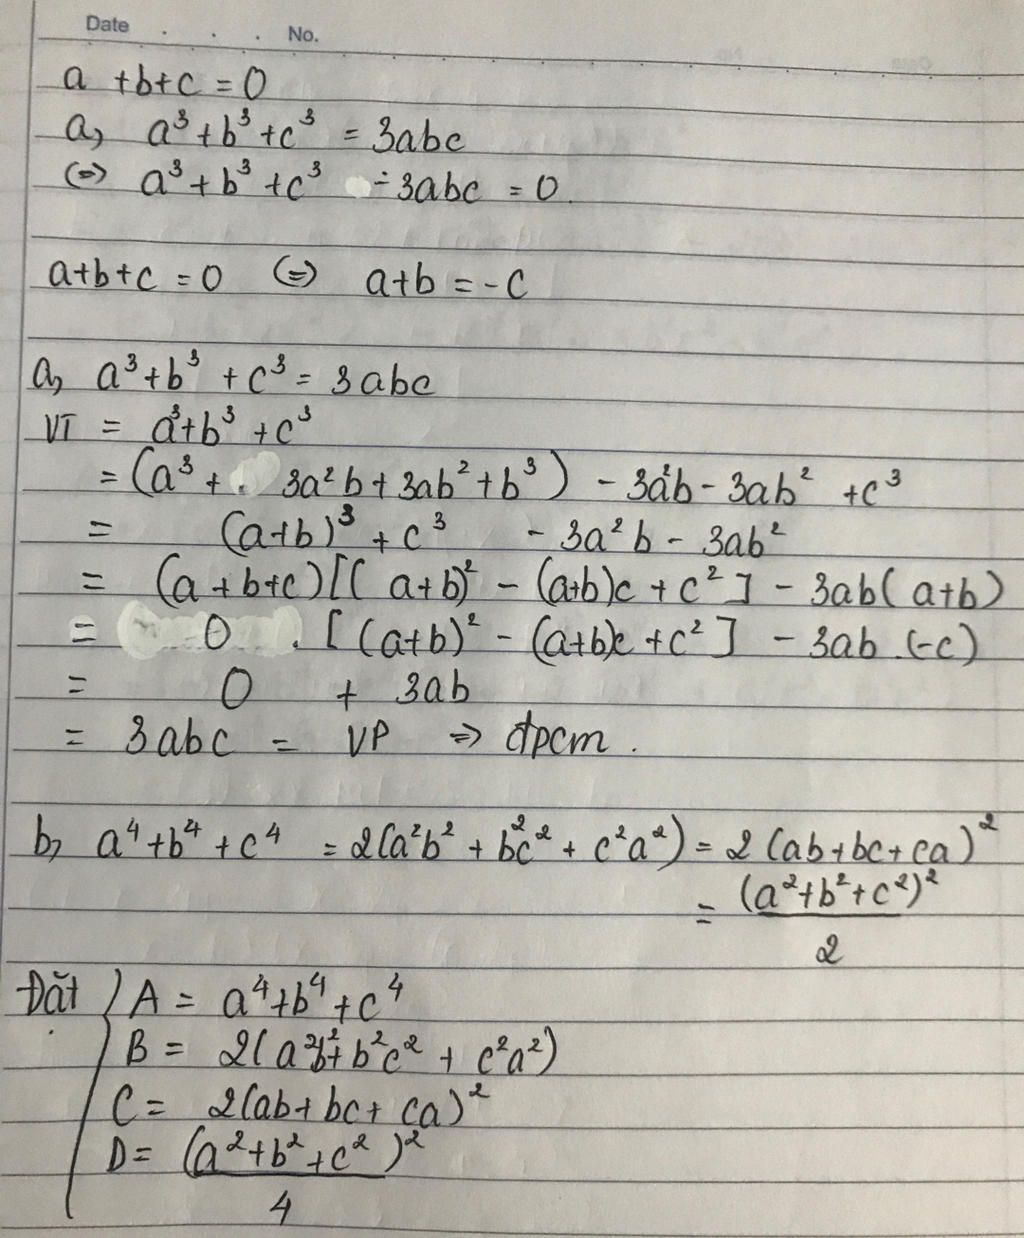 Date . . . No.
a + b + c = 0
a, a³ + b³ + c³ = 3abc
(=) a³ + b³ + c³ - 3abc = 0.
a + b + c = 0 (=) a + b = - c
a, a³ + b³ + c³ = 3abc
VT = a³ + b³ + c³
= (a³ + 3a²b + 3ab² + b³) - 3a²b - 3ab² + c³
= (a+b)³ + c³ - 3a²b - 3ab²
= (a + b + c) [(a+b)² - (a+b)c + c²] - 3ab(a+b)
= 0 . [(a+b)² - (a+b)c + c²] - 3ab.(-c)
= 0 + 3ab
= 3abc = VP => đpcm.
b, a⁴ + b⁴ + c⁴ = 2(a²b² + b²c² + c²a²) = 2(ab + bc + ca)²
= (a² + b² + c²)²
2
Đặt { A = a⁴ + b⁴ + c⁴
B = 2(a²b² + b²c² + c²a²)
C = 2(ab + bc + ca)²
D = (a² + b² + c²)²
4